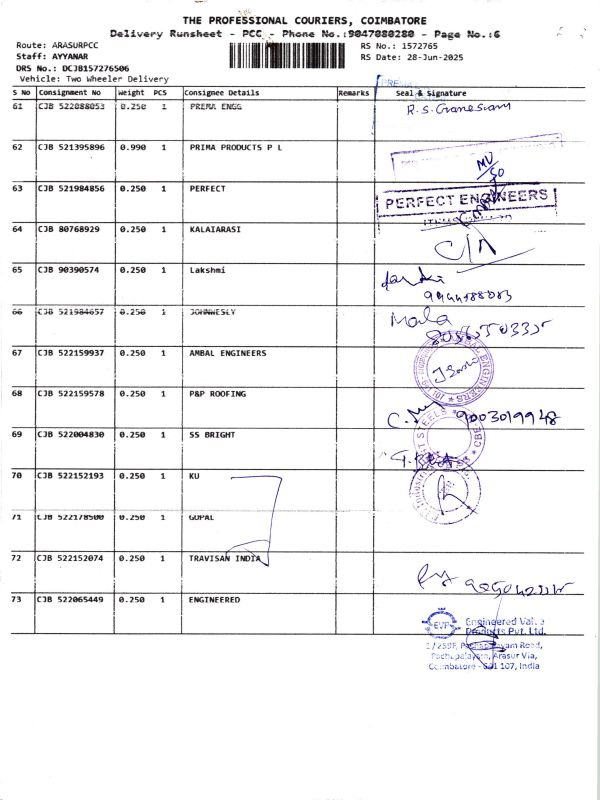 THE PROFESSIONAL COURIERS, COIMBATORE
Delivery Runsheet - PCC - Phone No.:9047080280 - Page No.:6
Route: ARASURPCC RS No.: 1572765
Staff: AYYANAR RS Date: 28-Jun-2025
DRS No.: DCJB157276506
Vehicle: Two Wheeler Delivery
S No Consignment No Weight PCS Consignee Details Remarks Seal & Signature
61 CJB 522088053 0.250 1 PREMA ENGG
62 CJB 521395896 0.990 1 PRIMA PRODUCTS P L
63 CJB 521984856 0.250 1 PERFECT PERFECT ENGINEERS
64 CJB 80768929 0.250 1 KALAIARASI
65 CJB 90390574 0.250 1 Lakshmi
66 CJB 521984657 0.250 1 JOHNWESLY Mala
67 CJB 522159937 0.250 1 AMBAL ENGINEERS
68 CJB 522159578 0.250 1 P&P ROOFING 9003019948
69 CJB 522004830 0.250 1 SS BRIGHT
70 CJB 522152193 0.250 1 KU
71 CJB 522178500 0.250 1 GOPAL
72 CJB 522152074 0.250 1 TRAVISAN INDIA
73 CJB 522065449 0.250 1 ENGINEERED
EVP Engineered Val
Products Pvt. Ltd.
Road,
Arasur Via,
Coimbatore - 641 107, India